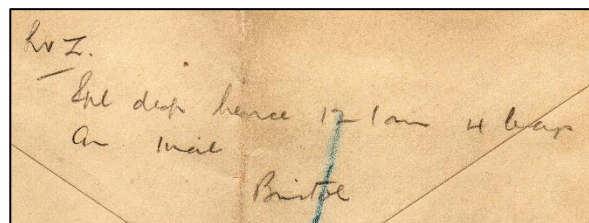 Lv Z.
Spl desp hence 12-1am 4 bags
Am mail
Bristol